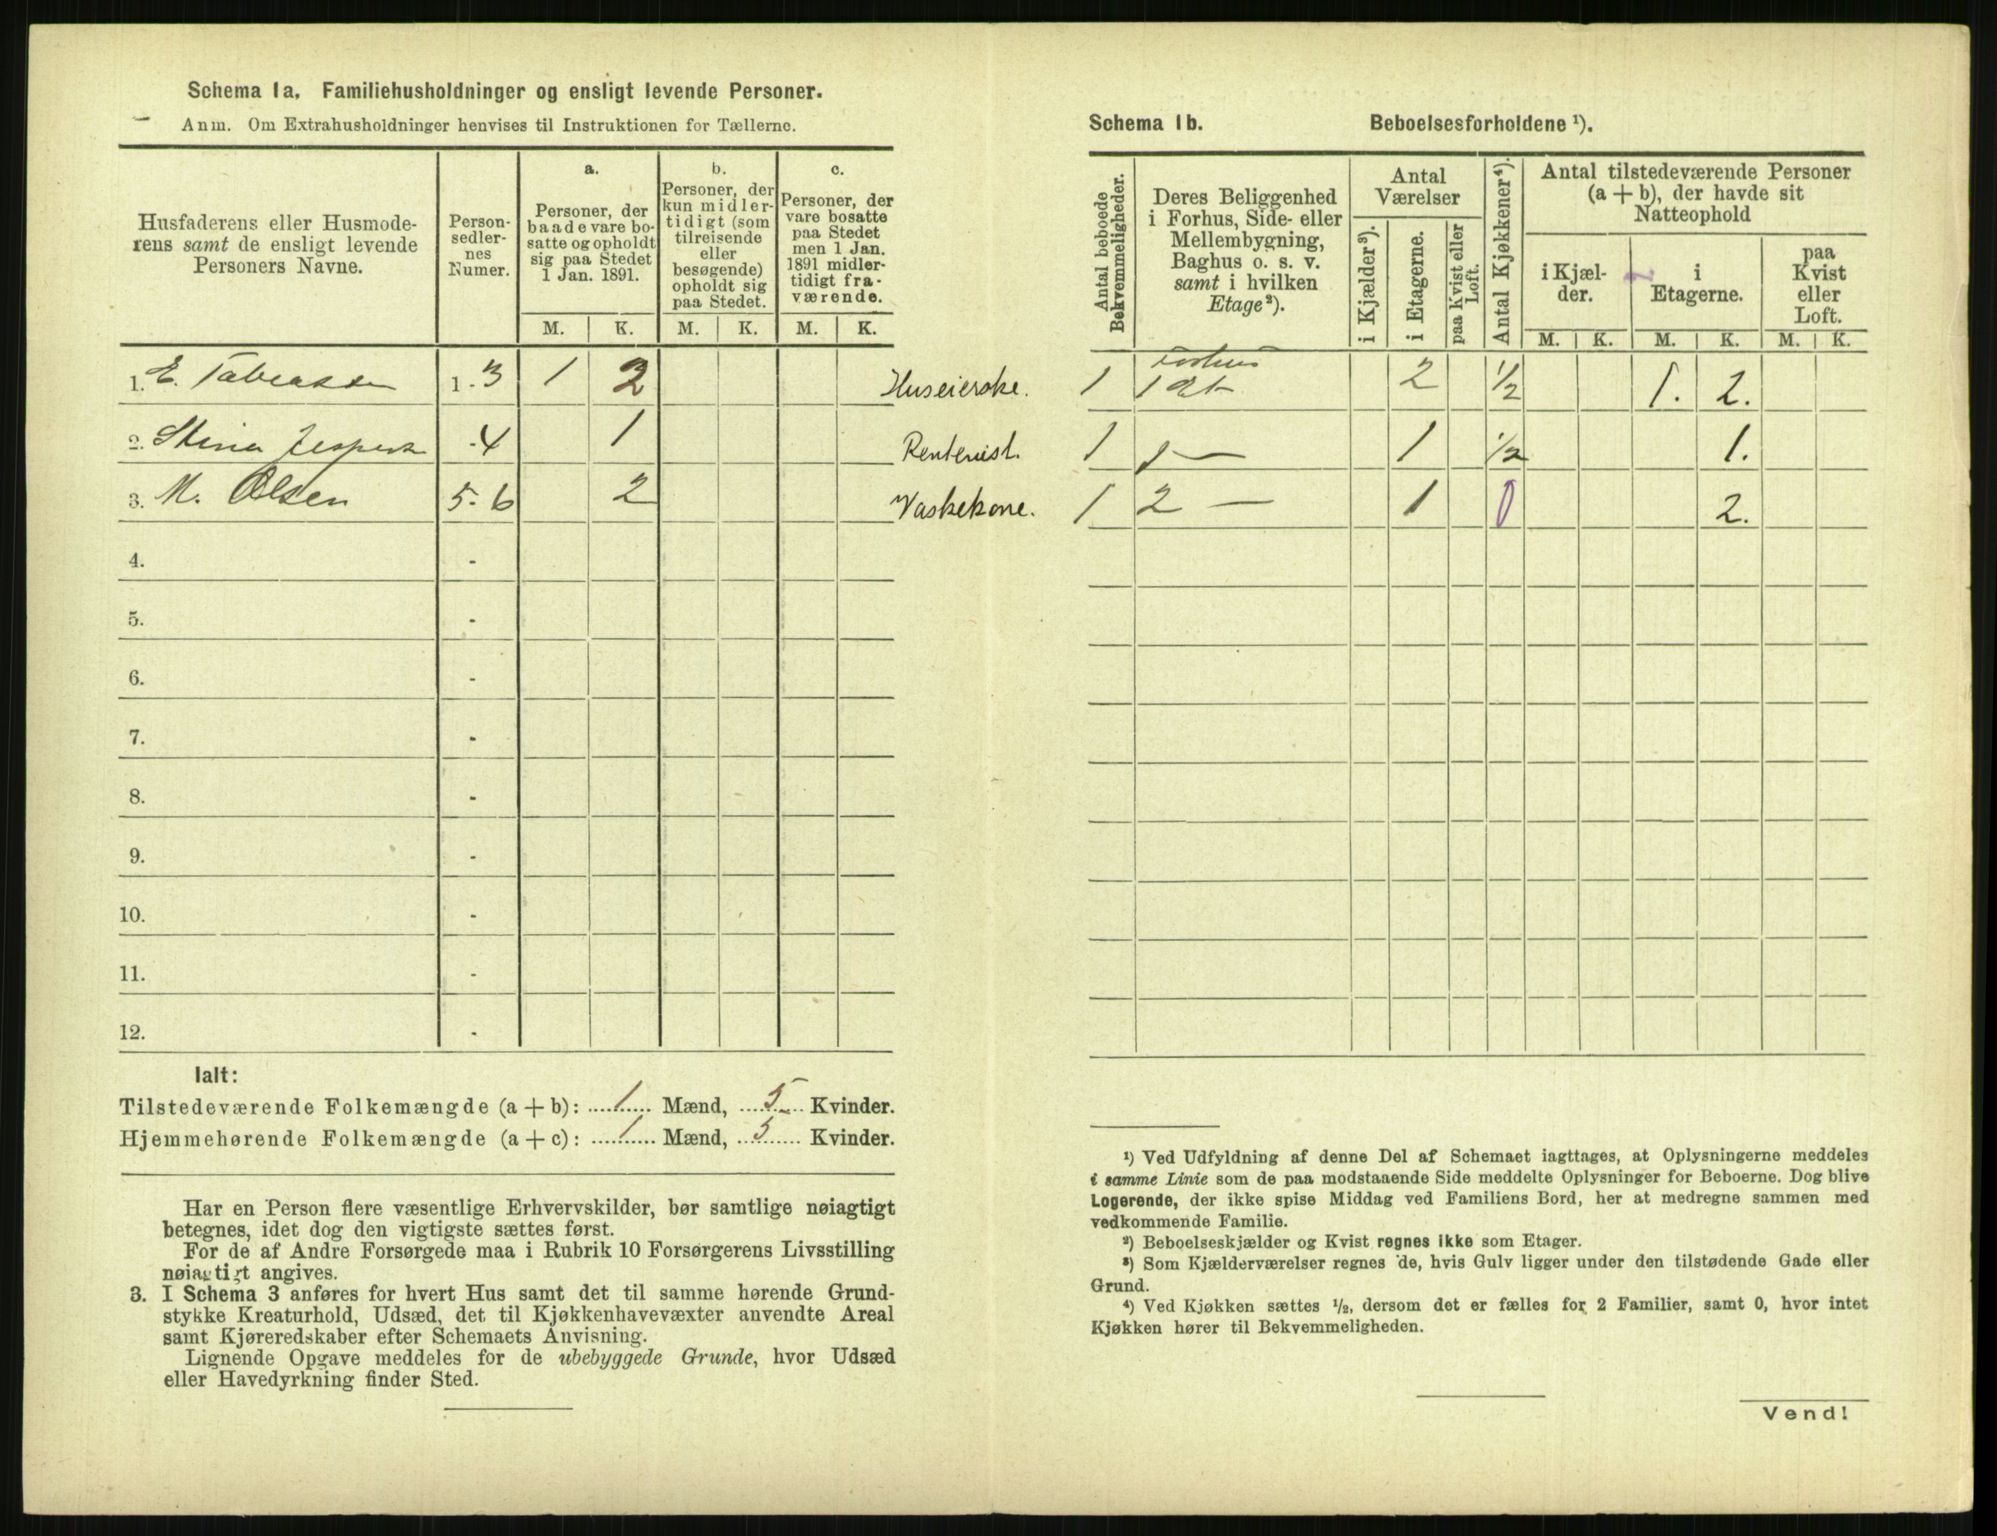 Schema 1a. Familiehusholdninger og ensligt levende Personer.
Anm. Om Extrahusholdninger henvises til Instruktionen for Tællerne.
Husfaderens eller Husmode-
rens samt de ensligt levende
Personers Navne.
Person-
sedler-
nes
Numer.
a.
Personer, der
baade vare bo-
satte og opholdt
sig paa Stedet
1 Jan. 1891.
b.
Personer, der
kun midler-
tidigt (som
tilreisende
eller
besøgende)
opholdt sig
paa Stedet.
c.
Personer, der
vare bosatte
paa Stedet
men 1 Jan.
1891 midler-
tidigt fra-
værende.
M. K. M. K. M. K.
1. E. 1-3 1 2 Huseierske.
2. Stina -4 1 Rentenist.
3. M. Olsen 5-6 2 Vaskekone.
4. -
5. -
6. -
7. -
8. -
9. -
10. -
11. -
12. -
Ialt:
Tilstedeværende Folkemængde (a + b): 1 Mænd, 5 Kvinder.
Hjemmehørende Folkemængde (a + c): 1 Mænd, 5 Kvinder.
Har en Person flere væsentlige Erhvervskilder, bør samtlige nøiagtigt
betegnes, idet dog den vigtigste sættes først.
For de af Andre Forsørgede maa i Rubrik 10 Forsørgerens Livsstilling
nøiagtigt angives.
3. I Schema 3 anføres for hvert Hus samt det til samme hørende Grund-
stykke Kreaturhold, Udsæd, det til Kjøkkenhavevæxter anvendte Areal
samt Kjøreredskaber efter Schemaets Anvisning.
Lignende Opgave meddeles for de ubebyggede Grunde, hvor Udsæd
eller Havedyrkning finder Sted.
Schema 1b. Beboelsesforholdene ¹).
Antal beboede
Bekvemmeligheder.
Deres Beliggenhed
i Forhus, Side- eller
Mellembygning,
Baghus o. s. v.
samt i hvilken
Etage²).
Antal
Værelser
i Kjælder³).
i Etagerne.
paa Kvist eller
Loft.
Antal Kjøkkener⁴).
Antal tilstedeværende Personer
(a + b), der havde sit
Natteophold
i Kjæl-
der.
i
Etagerne.
paa
Kvist
eller
Loft.
M. K. M. K. M. K.
Forhus
1 1 Et 2 1/2 1. 2.
1 1 — 1 1/2 1.
1 2 — 1 0 2.
¹) Ved Udfyldning af denne Del af Schemaet iagttages, at Oplysningerne meddeles
i samme Linie som de paa modstaaende Side meddelte Oplysninger for Beboerne. Dog blive
Logerende, der ikke spise Middag ved Familiens Bord, her at medregne sammen med
vedkommende Familie.
²) Beboelseskjælder og Kvist regnes ikke som Etager.
³) Som Kjælderværelser regnes de, hvis Gulv ligger under den tilstødende Gade eller
Grund.
⁴) Ved Kjøkken sættes ½, dersom det er fælles for 2 Familier, samt 0, hvor intet
Kjøkken hører til Bekvemmeligheden.
Vend!